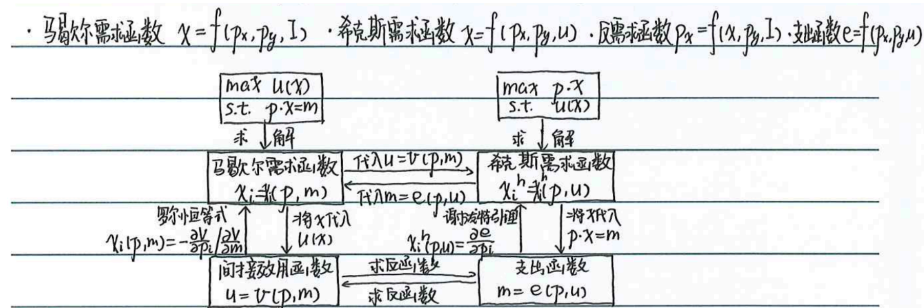 ·马歇尔需求函数 x=f(px,py,I) ·希克斯需求函数 x=f(px,py,u) ·反需求函数px=f(x,py,I)·支出函数e=f(px,py,u)
max u(x)
s.t. p·x=m
max p·x
s.t. u(x)
求 解
求 解
马歇尔需求函数
xi=xi(p,m)
代入u=v(p,m)
代入m=e(p,u)
希克斯需求函数
xi^h=xi^h(p,u)
罗尔恒等式
xi(p,m)=-∂v/∂pi/∂v/∂m
将x代入
u(x)
谢波特引理
xi^h(p,u)=∂e/∂pi
将x代入
p·x=m
间接效用函数
u=v(p,m)
求反函数
求反函数
支出函数
m=e(p,u)